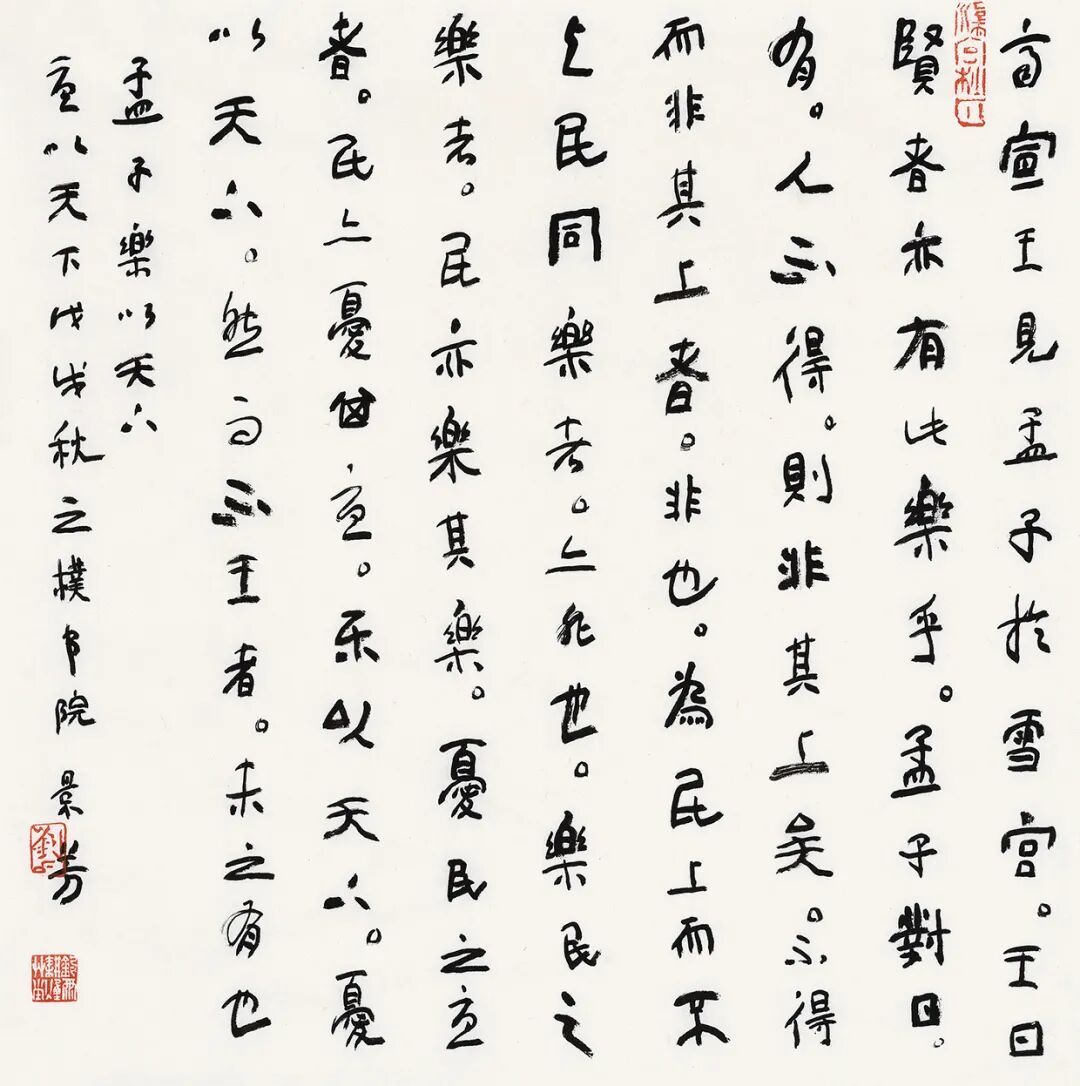 齊宣王見孟子於雪宮。王曰
賢者亦有此樂乎。孟子對曰。
有。人不得。則非其上矣。不得
而非其上者。非也。為民上而不
与民同樂者。亦非也。樂民之
樂者。民亦樂其樂。憂民之憂
者。民亦憂其憂。乐以天下。憂
以天下。然而不王者。未之有也
孟子樂以天下
憂以天下戊戌秋之樸书院 景芳
劉